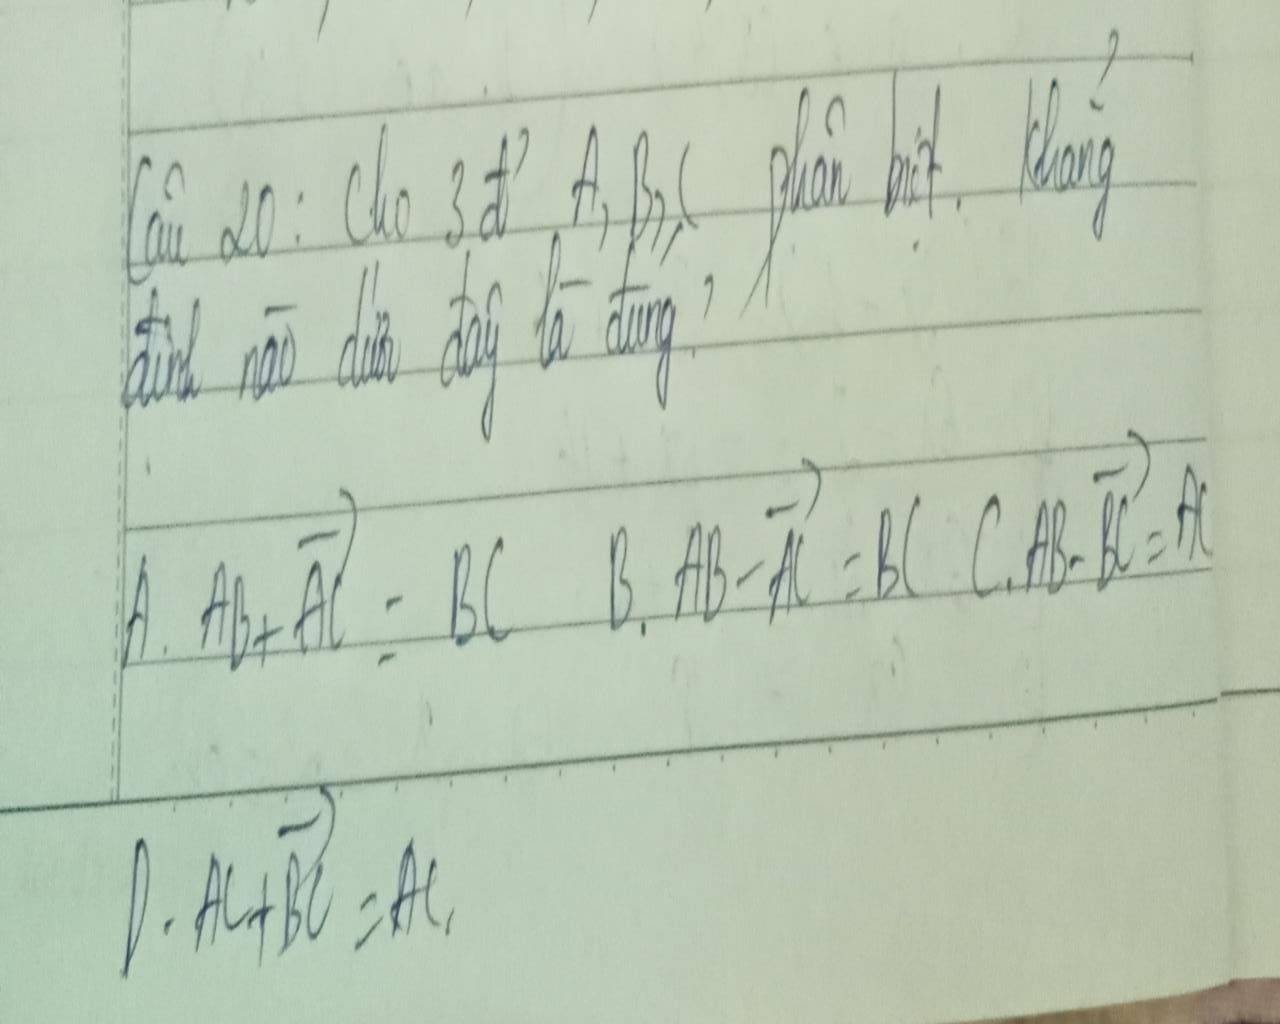 Câu 20: Cho 3 đ' A, B, C phân biệt. Khẳng
định nào dưới đây là đúng?
A. AB + \overrightarrow{AC} = BC B. AB - \overrightarrow{AC} = BC C. AB - \overrightarrow{BC} = AC
D. AC + \overrightarrow{BC} = AC.